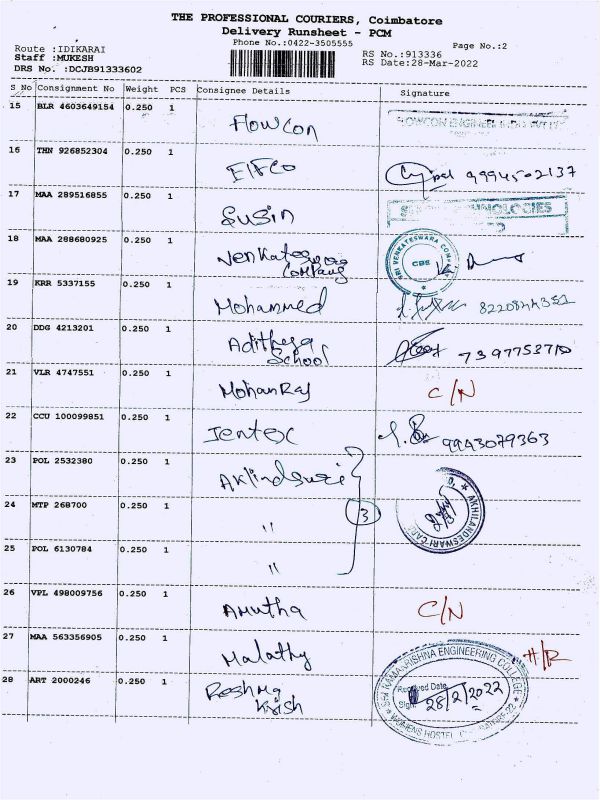 THE PROFESSIONAL COURIERS, Coimbatore
Delivery Runsheet - PCM
Phone No.:0422-3505555
Page No.:2
Route :IDIKARAI
Staff :MUKESH
DRS No. :DCJB91333602
RS No.:913336
RS Date:28-Mar-2022
S No Consignment No Weight PCS Consignee Details Signature
15 BLR 4603649154 0.250 1 Flowcon
16 THN 926852304 0.250 1 EIFCO 9994502137
17 MAA 289516855 0.250 1 Susin
18 MAA 288680925 0.250 1 Venkateswara
Company
SRI VENKATESWARA COMPANY
CBE
19 KRR 5337155 0.250 1 Mohammed 8220844351
20 DDG 4213201 0.250 1 Adithya
School
7397753710
21 VLR 4747551 0.250 1 MohanRaj C/N
22 CCU 100099851 0.250 1 Jentec 9943079363
23 POL 2532380 0.250 1
24 MTP 268700 0.250 1 " 3
AKHILANDESWARI
25 POL 6130784 0.250 1 "
26 VPL 498009756 0.250 1 Amutha C/N
27 MAA 563356905 0.250 1 Malathy H/R
28 ART 2000246 0.250 1 Reshma
Krish
SRI RAMAKRISHNA ENGINEERING COLLEGE
Received Date
Sign
28/2/2022
WOMENS HOSTEL, COIMBATORE-22